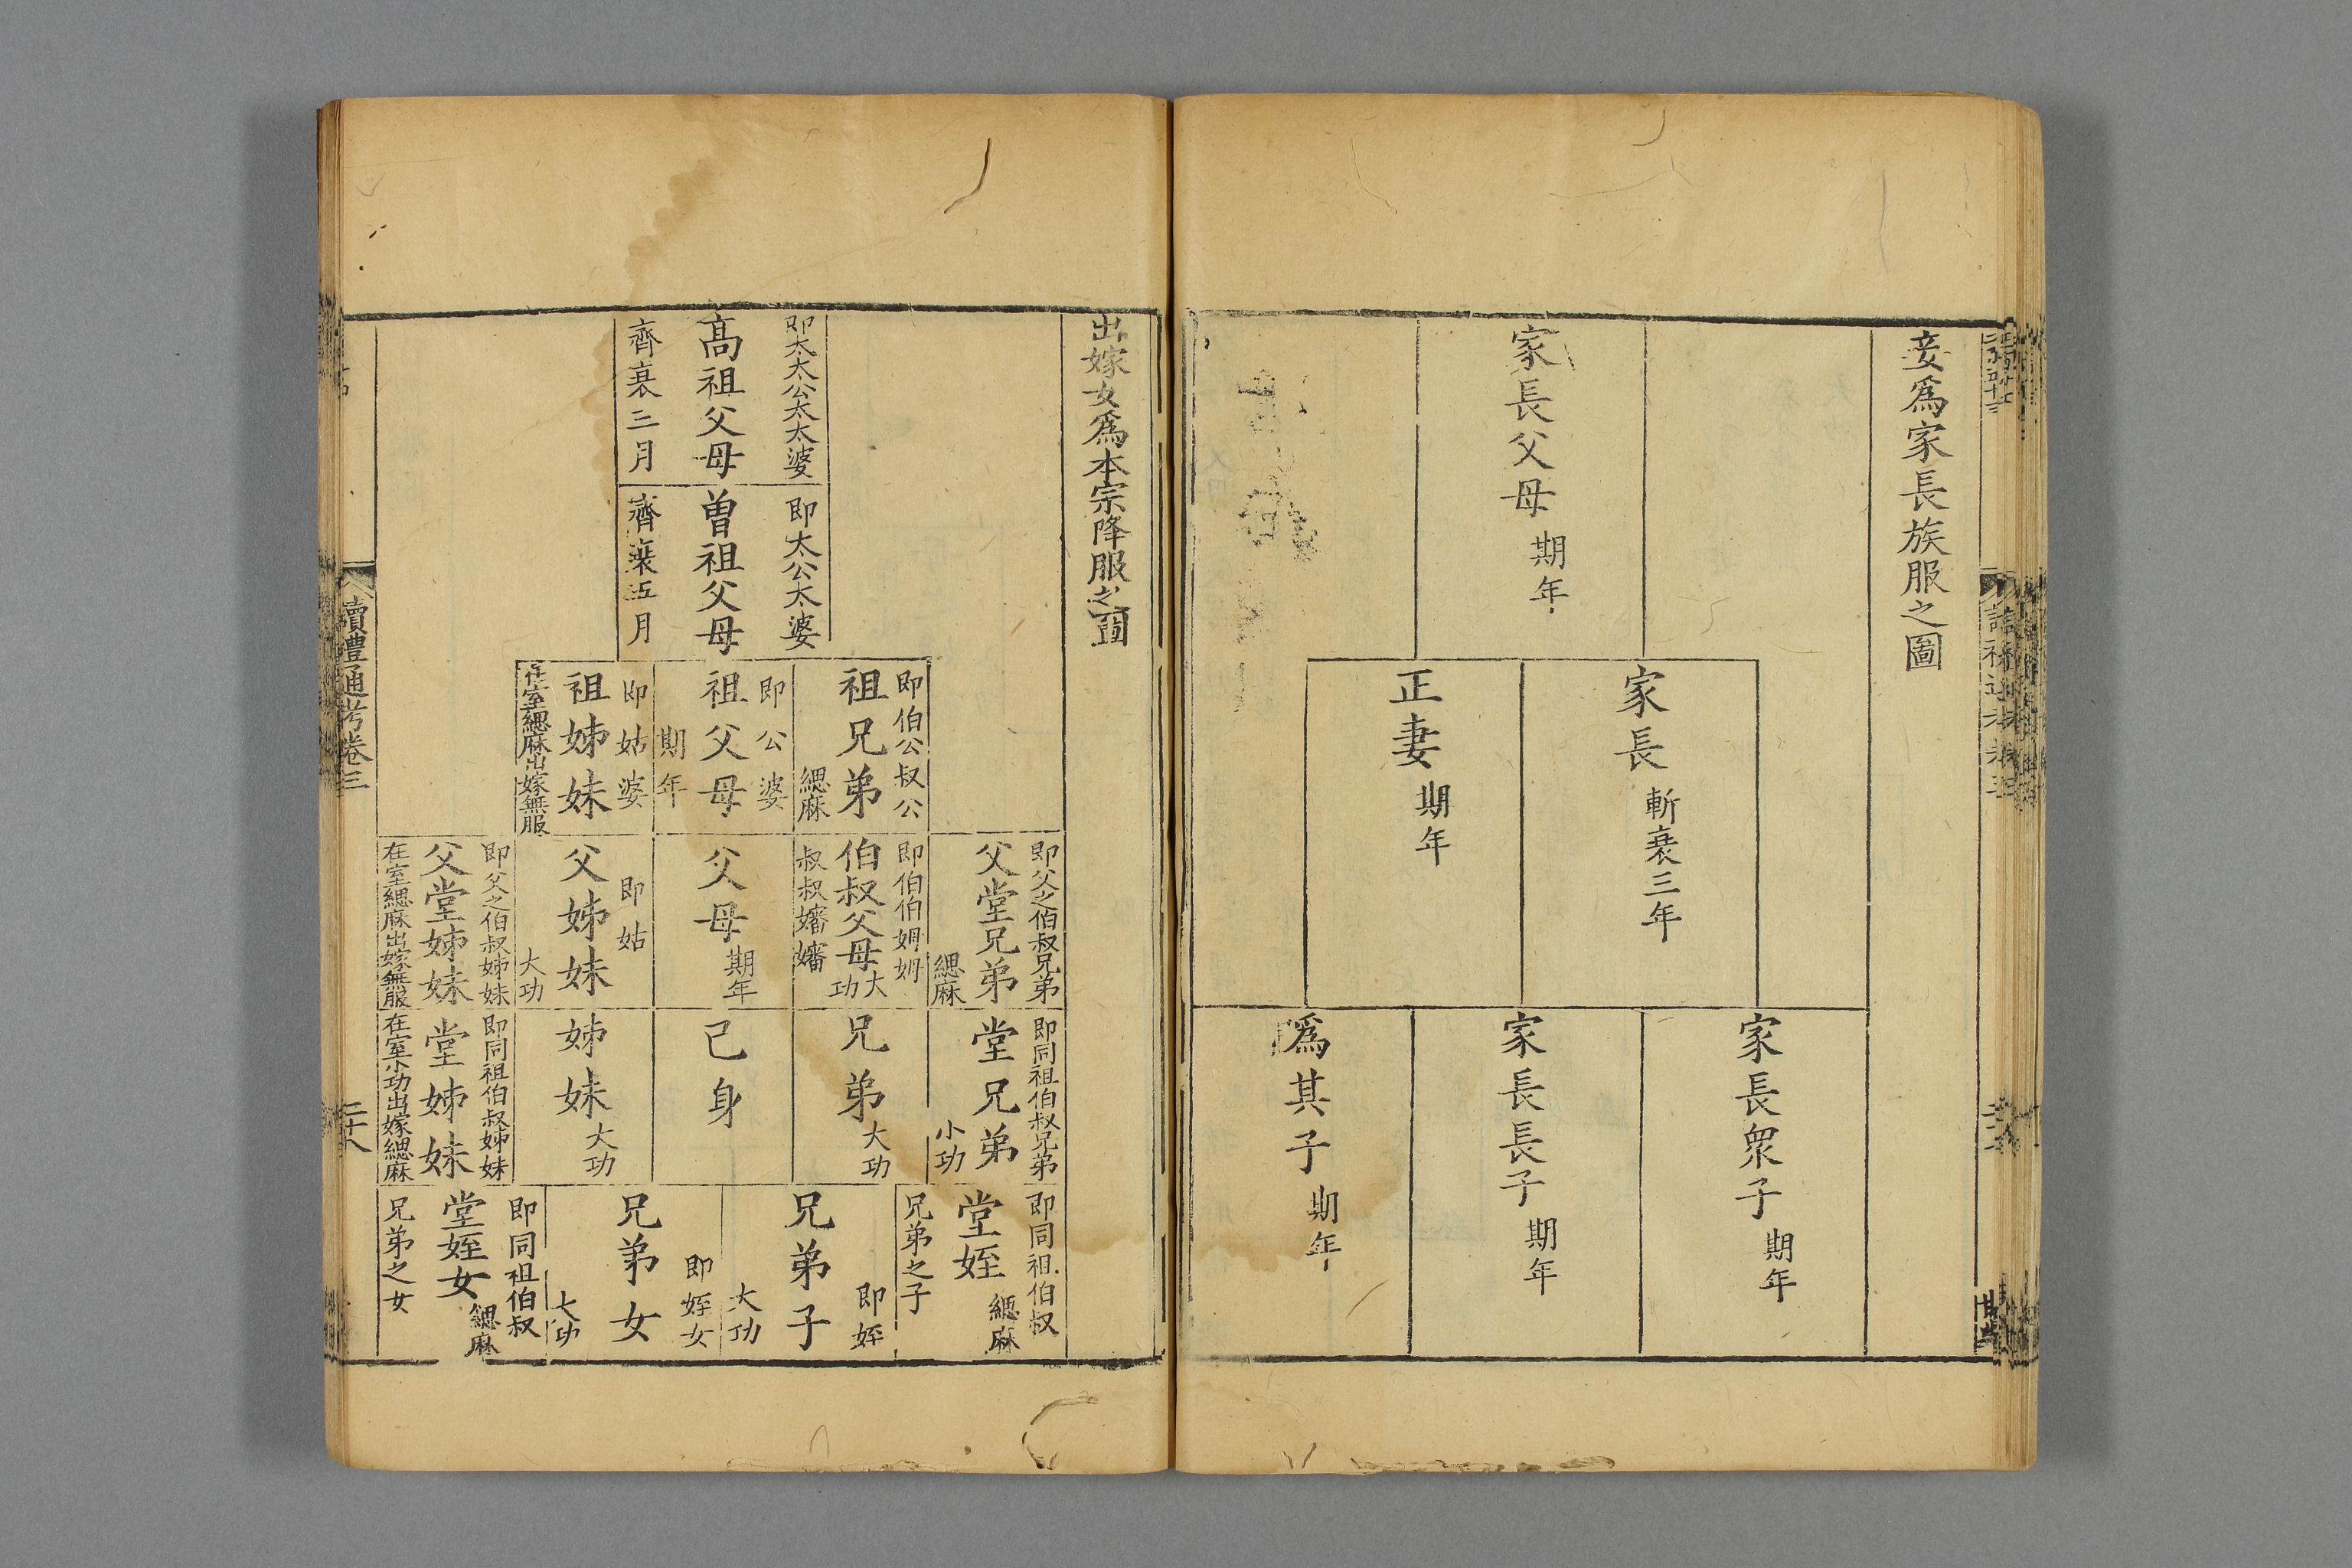 妾爲家長族服之圖
家長父母 期年
家長 斬衰三年
正妻 期年
家長衆子 期年
家長長子 期年
爲其子 期年
出嫁女爲本宗降服之圖
即太太公太太婆
高祖父母
齊衰三月
即太公太婆
曾祖父母
齊衰五月
即伯公叔公
祖兄弟
緦麻
即公婆
祖父母
期年
即姑婆
祖姊妹
在室緦麻出嫁無服
即父之伯叔兄弟
父堂兄弟
緦麻
即伯伯姆姆
伯叔父母 大功
叔叔嬸嬸
父母 期年
即姑
父姊妹
大功
即父之伯叔姊妹
父堂姊妹
在室緦麻出嫁無服
即同祖伯叔兄弟
堂兄弟
小功
兄弟 大功
己身
姊妹 大功
即同祖伯叔姊妹
堂姊妹
在室小功出嫁緦麻
即同祖伯叔
堂姪 緦麻
兄弟之子
即姪
兄弟子
大功
即姪女
兄弟女
大功
即同祖伯叔
堂姪女 緦麻
兄弟之女
讀禮通考卷三
二十八